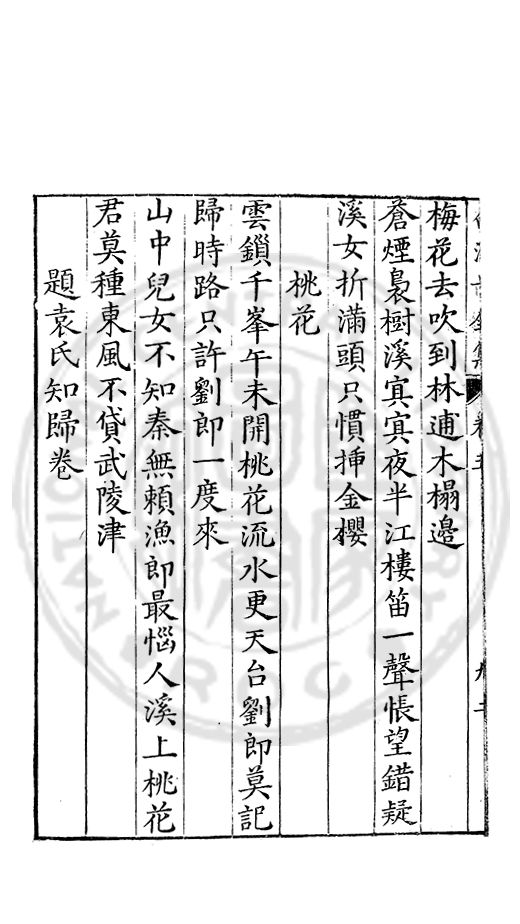 梅花去吹到林逋木榻邊
蒼煙裊樹溪寘寘夜半江樓笛一聲悵望錯疑
溪女折滿頭只慣揷金櫻
桃花
雲鎖千峯午未開桃花流水更天台劉郎莫記
歸時路只許劉郎一度來
山中兒女不知秦無賴漁郎最惱人溪上桃花
君莫種東風不貸武陵津
題袁氏知歸卷